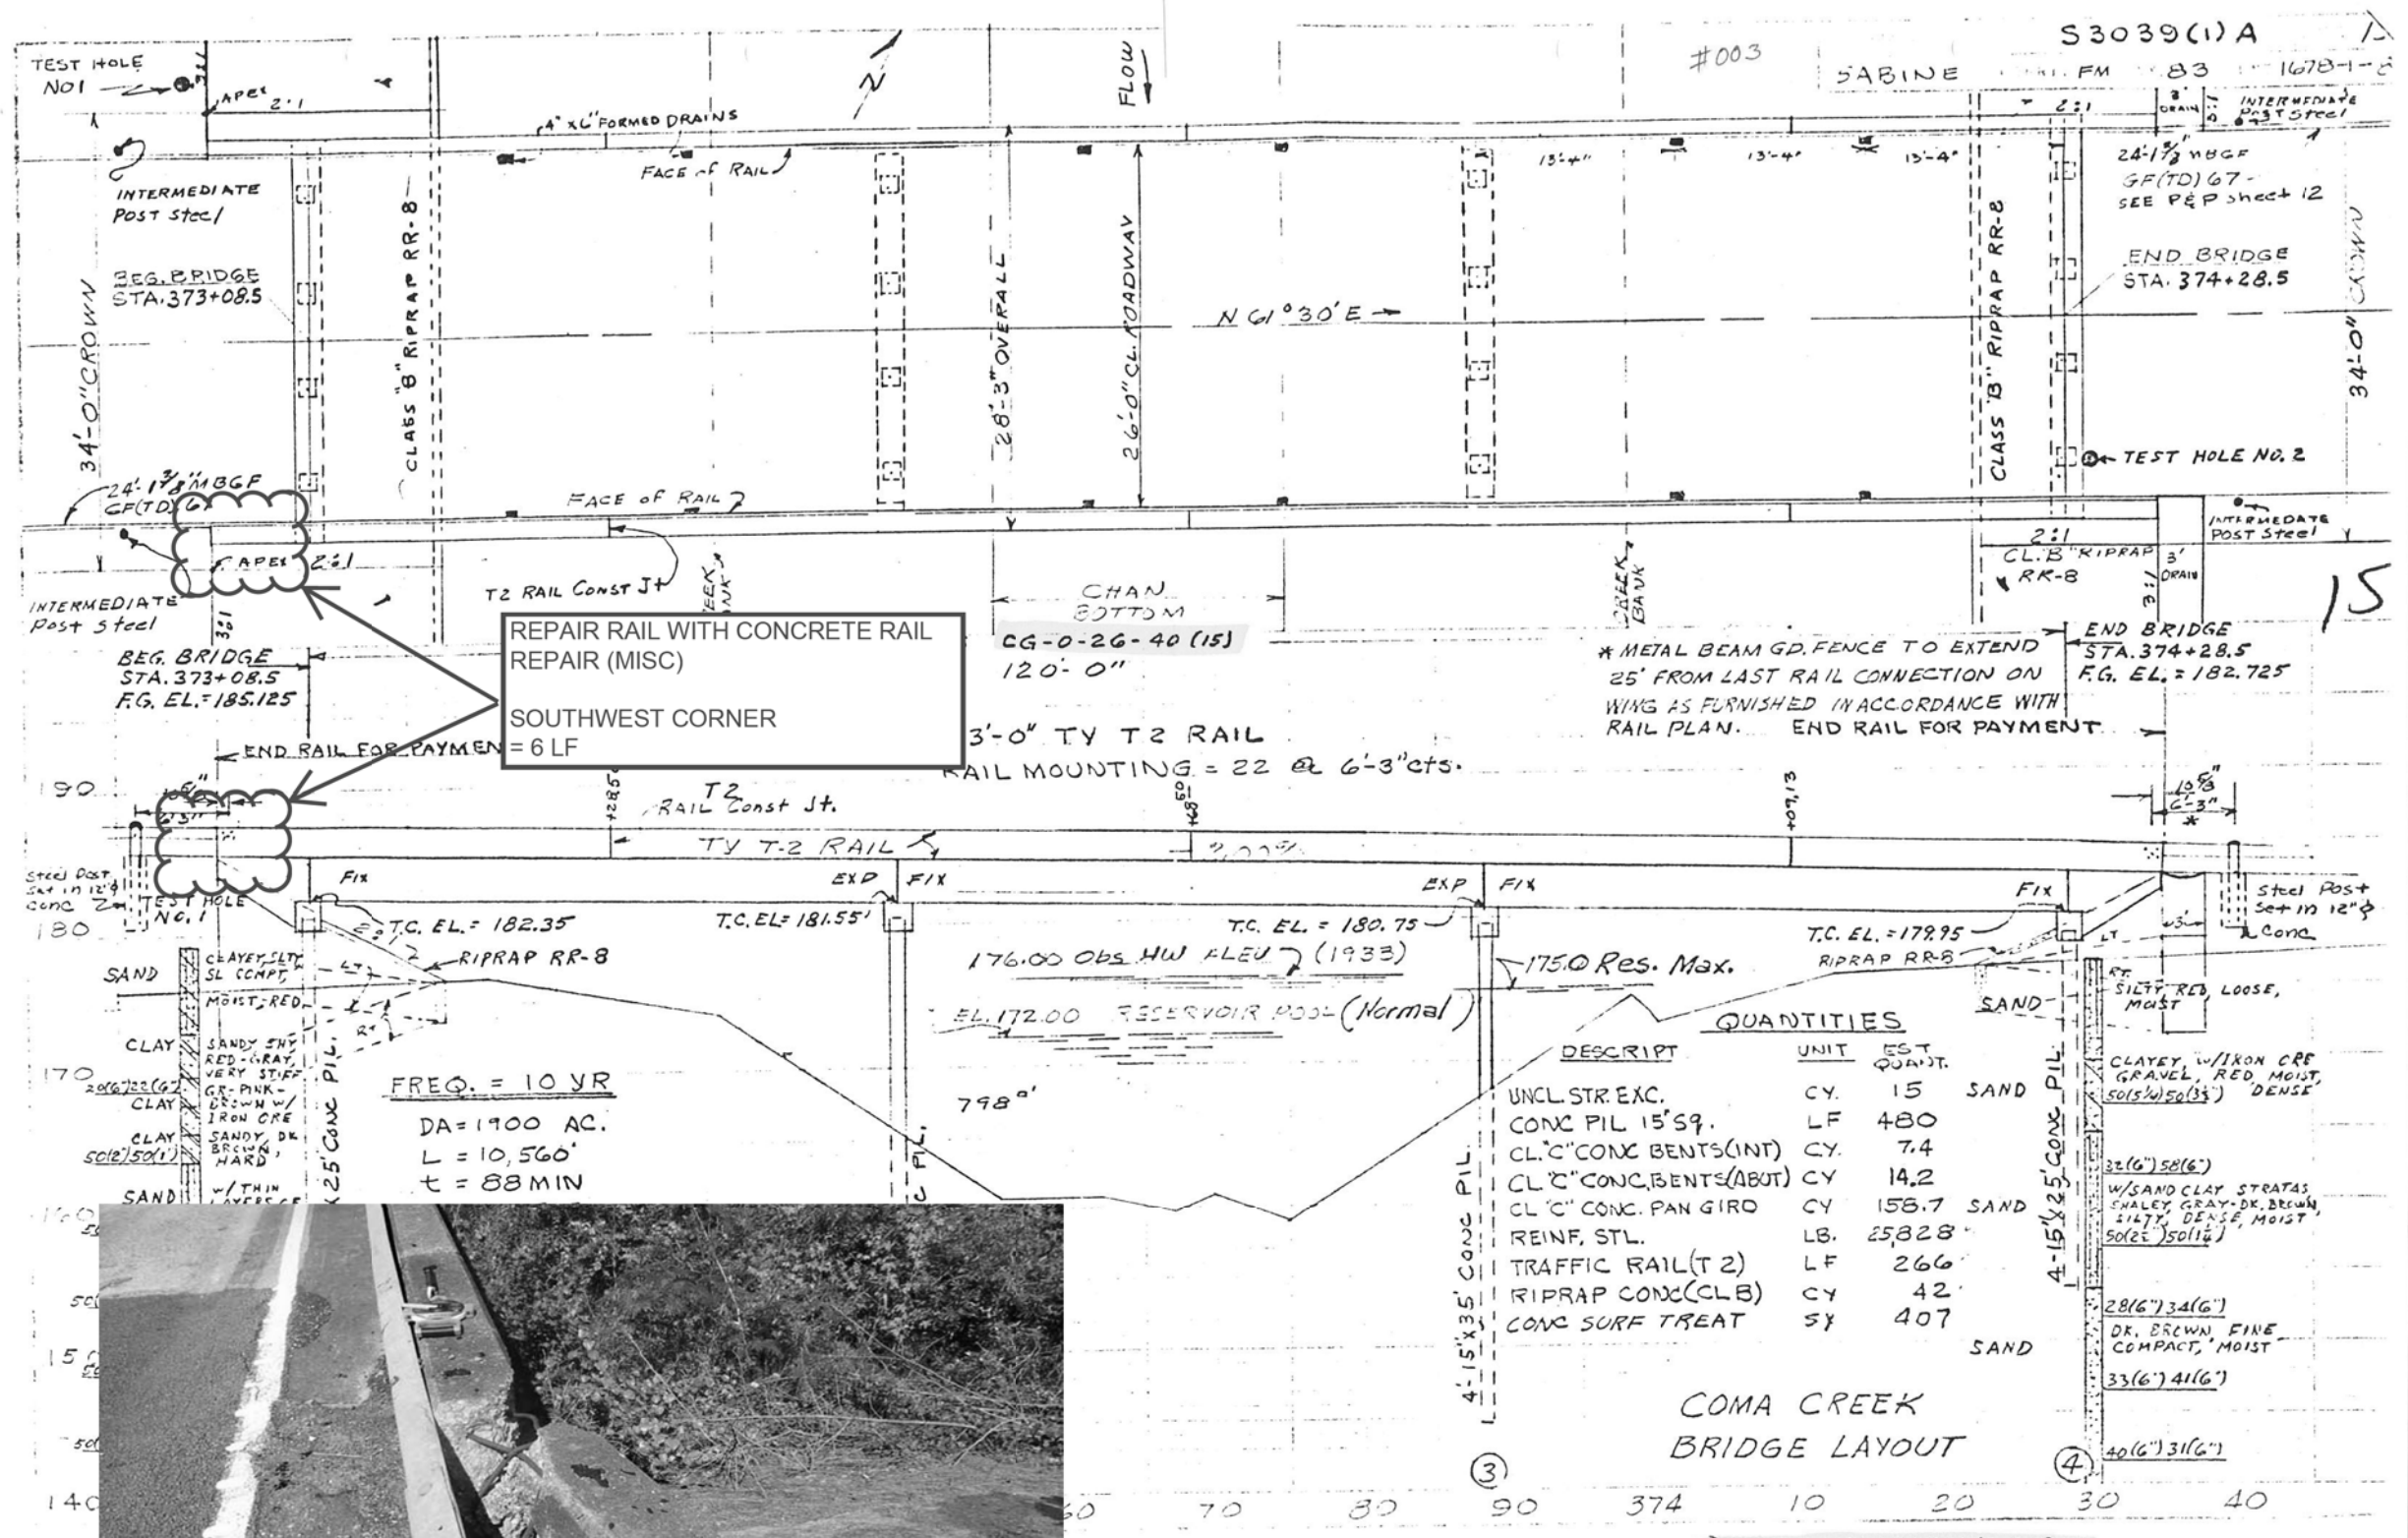 S3039(1)A
#003
SABINE
FM
83
1678-1-
TEST HOLE
NO1
APEX
2:1
3:1
4" X 6" FORMED DRAINS
FACE of RAIL
FLOW
2:1
3'
DRAIN
3:1
INTERMEDIATE
Post Steel
13'-4"
13'-4"
13'-4"
24'-1 7/8 MBGF
GF(TD) 67
SEE P&P sheet 12
INTERMEDIATE
Post steel
BEG. BRIDGE
STA. 373+08.5
34'-0" CROWN
CLASS "B" RIPRAP RR-8
28'-3" OVERALL
26'-0" CL. ROADWAY
N 61°30' E
CLASS "B" RIPRAP RR-8
END BRIDGE
STA. 374+28.5
34'-0" CROWN
TEST HOLE NO. 2
24'-1 7/8" MBGF
GF(TD) 6
FACE of RAIL
APEX
2:1
INTERMEDIATE
Post steel
3:1
T2 RAIL Const Jt
CHAN
BOTTOM
CREEK
BANK
2:1
CL. B" RIPRAP
RR-8
3'
DRAIN
3:1
INTERMEDATE
POST Steel
15
REPAIR RAIL WITH CONCRETE RAIL
REPAIR (MISC)
SOUTHWEST CORNER
= 6 LF
CG-0-26-40 (15)
120'-0"
BEG. BRIDGE
STA. 373+08.5
F.G. EL. = 185.125
* METAL BEAM GD. FENCE TO EXTEND
25' FROM LAST RAIL CONNECTION ON
WING AS FURNISHED IN ACCORDANCE WITH
RAIL PLAN.
END BRIDGE
STA. 374+28.5
F.G. EL. = 182.725
END RAIL FOR PAYMEN
END RAIL FOR PAYMENT
3'-0" TY T2 RAIL
RAIL MOUNTING = 22 @ 6'-3" cts.
190
T2
RAIL Const Jt.
+28.5
+68.50
+09.13
10 5/8
6'-3"
*
TY T-2 RAIL
Steel Post
Set in 12"φ
conc
TEST HOLE
NO. 1
FIX
EXP
FIX
EXP
FIX
FIX
Steel Post
Set in 12"φ
Conc
180
T.C. EL. = 182.35
T.C. EL= 181.55'
T.C. EL. = 180.75
T.C. EL. = 179.95
RIPRAP RR-8
RIPRAP RR-8
3'
LT
176.00 Obs HW ELEV (1933)
175.0 Res. Max.
EL. 172.00 RESERVOIR POOL (Normal)
SAND
CLAYEY, SLTY
SL COMPT,
MOIST, RED
LT
RT
CLAY
SANDY SHY
RED-GRAY,
VERY STIFF
170
20(6")22(6")
CLAY
GR-PINK-
BROWN W/
IRON ORE
CLAY
50(2")50(1")
SANDY, DK
BROWN,
HARD
SAND
W/THIN
LAYERS OF
X 25' CONC PIL.
FREQ. = 10 YR
DA = 1900 AC.
L = 10,560'
t = 88 MIN
798
C PIL.
4-15"X35' CONC PIL.
QUANTITIES
DESCRIPT UNIT EST. QUANT.
UNCL. STR. EXC. CY. 15
CONC PIL 15" SQ. LF 480
CL. "C" CONC BENTS (INT) CY. 7.4
CL "C" CONC. BENTS (ABUT) CY 14.2
CL "C" CONC. PAN GIRD CY 158.7
REINF. STL. LB. 25,828
TRAFFIC RAIL (T 2) LF 266
RIPRAP CONC (CL B) CY 42
CONC SURF TREAT SY 407
SAND
RT.
SILTY, RED, LOOSE,
MOIST
SAND
CLAYEY, W/IRON ORE
GRAVEL, RED, MOIST,
DENSE
32(6")58(6")
SAND
W/SAND CLAY STRATAS
SHALEY, GRAY-DK. BROWN,
SILTY, DENSE, MOIST
28(6")34(6")
SAND
DK. BROWN, FINE
COMPACT, MOIST
33(6")41(6")
40(6")31(6")
4-15"X25' CONC PIL
COMA CREEK
BRIDGE LAYOUT
3
4
140
60
70
80
90
374
10
20
30
40